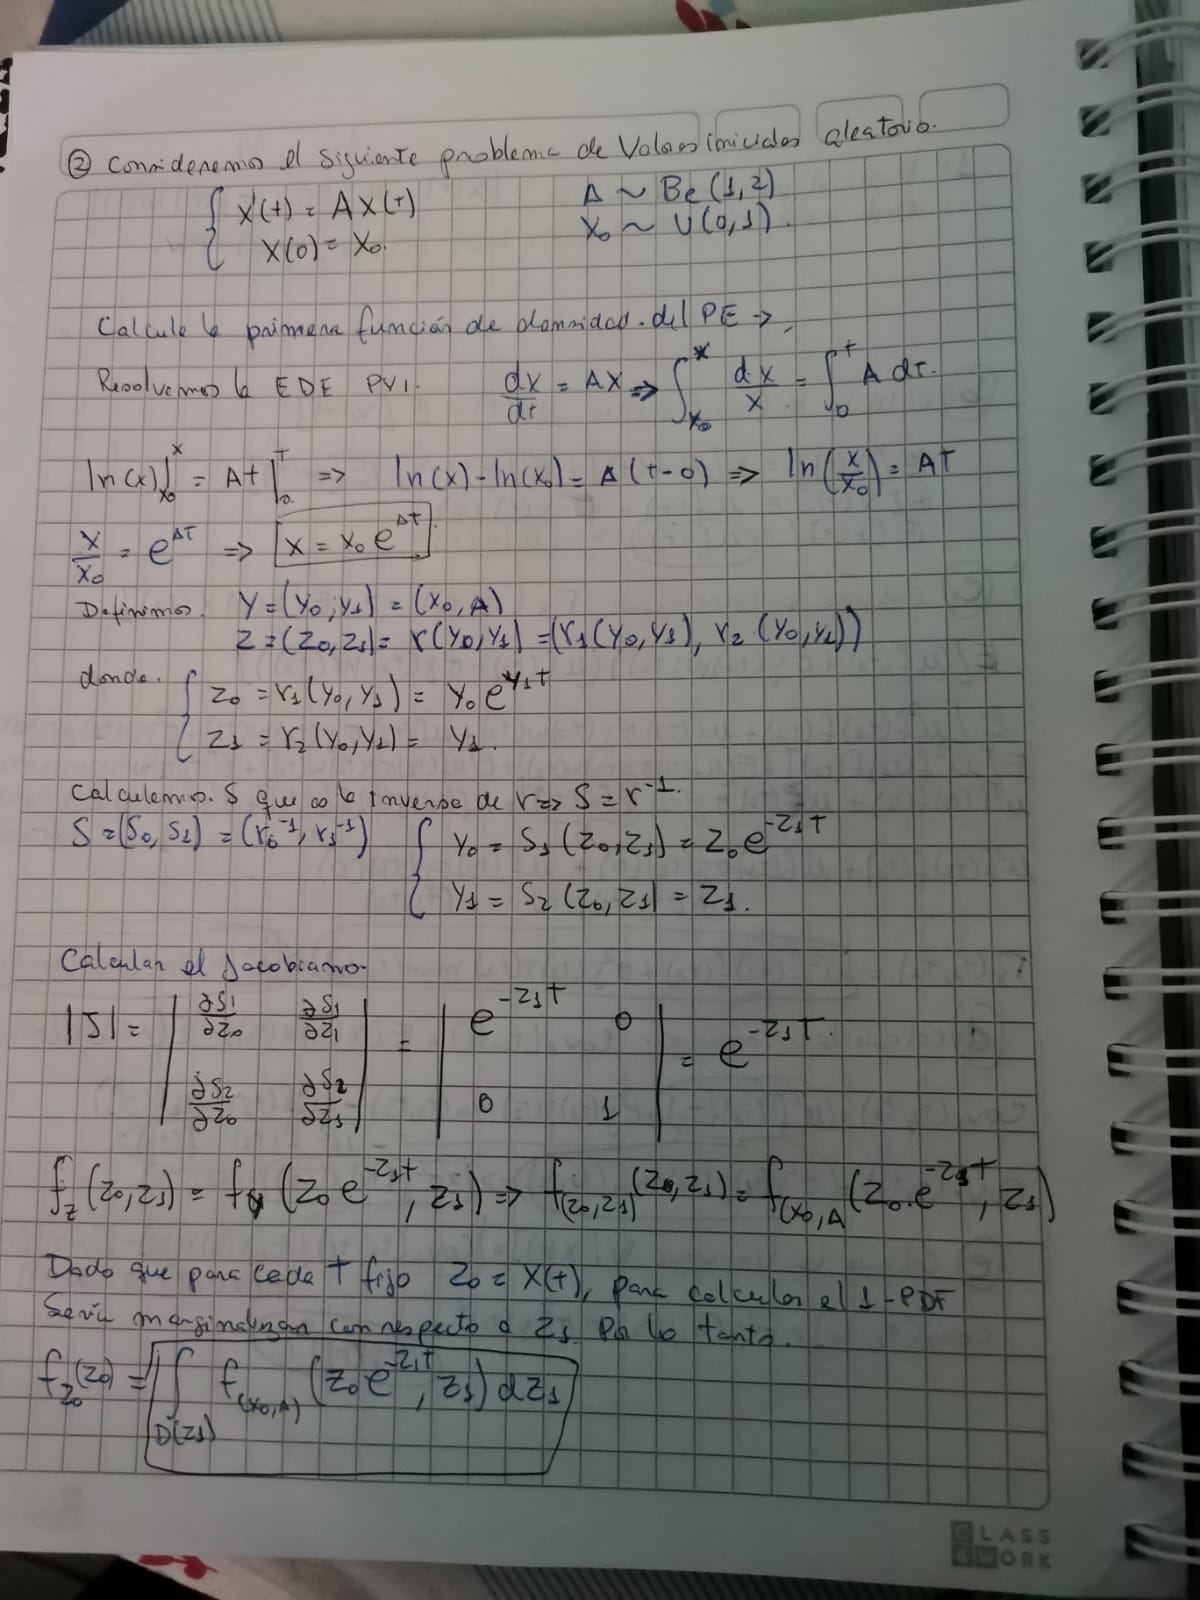 ② Consideremos el siguiente problema de Valores iniciales aleatorio.
{ X'(t) = A X(t)    A ~ Be (1,2)
X(0) = X₀.    X₀ ~ U(0,1).
Calcule la primera función de densidad. del PE →,
Resolvemos la EDE PVI.    dx/dt = AX ⇒ ∫_{x₀}^{x} dx/x = ∫_{0}^{t} A dt.
ln(x)|_{x₀}^{x} = At|_{0}^{t} ⇒ ln(x) - ln(x₀) = A (t-0) ⇒ ln(x/x₀) = AT
x/x₀ = e^{AT} ⇒ x = x₀ e^{AT}.
Definimos. Y = (Y₀, Y₁) = (X₀, A)
Z = (Z₀, Z₁) = r(Y₀, Y₁) = (r₁(Y₀, Y₁), r₂(Y₀, Y₁))
donde. { Z₀ = r₁(Y₀, Y₁) = Y₀ e^{Y₁t}
Z₁ = r₂(Y₀, Y₁) = Y₁.
Calculemos. S que es la inversa de r ⇒ S = r⁻¹.
S = (S₀, S₁) = (r₀⁻¹, r₁⁻¹)    { Y₀ = S₁(Z₀, Z₁) = Z₀ e^{-Z₁t}
Y₁ = S₂(Z₀, Z₁) = Z₁.
Calcular el Jacobiano.
|J| = | ∂S₁/∂Z₀  ∂S₁/∂Z₁ | = | e^{-Z₁t}  0 | = e^{-Z₁t}.
| ∂S₂/∂Z₀  ∂S₂/∂Z₁ |   | 0  1 |
f_Z(Z₀, Z₁) = f_Y(Z₀ e^{-Z₁t}, Z₁) ⇒ f_{(Z₀,Z₁)}(Z₀, Z₁) = f_{(X₀,A}(Z₀.e^{-Z₁t}, Z₁)
Dado que para cada t fijo Z₀ = X(t), para calcular el 1-PDF
Sería marginalizar con respecto a Z₁. Por lo tanto.
f_{Z₀}(Z₀) = ∫_{D(Z₁)} f_{(X₀,A)}(Z₀ e^{-Z₁t}, Z₁) dZ₁
CLASS
& WORK